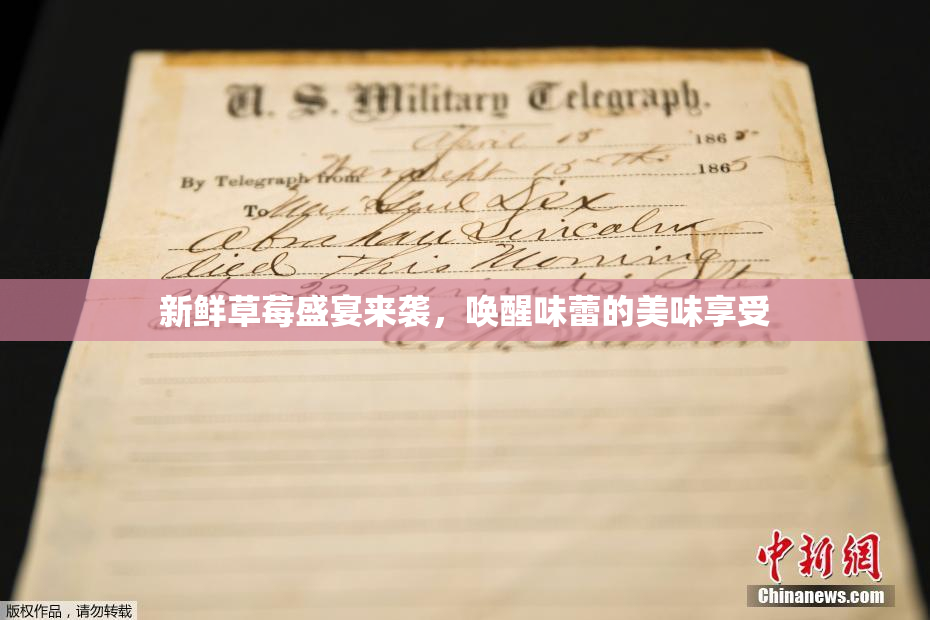 U. S. Military Telegraph.
April 15 1865
By Telegraph from War Dept 15th 1865
To Maj Genl Dix
Abraham Lincoln
died This Morning
22 minutes after
新鲜草莓盛宴来袭，唤醒味蕾的美味享受
E. M. Stanton
中新网
Chinanews.com
版权作品，请勿转载